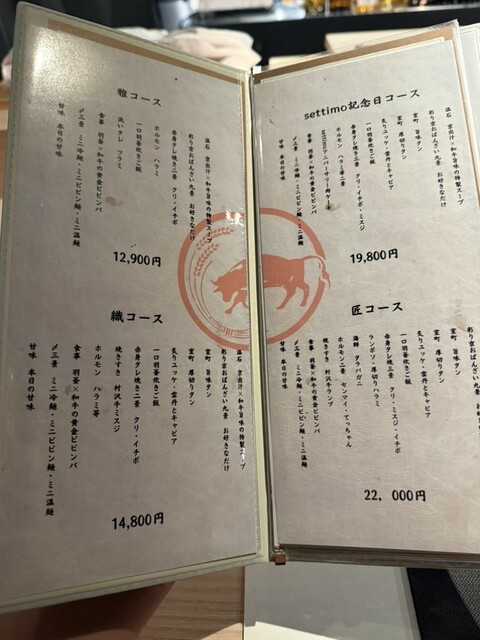 雅コース
温石 京出汁×和牛旨味の特製スープ
彩り京おばんざい九景 お好きなだけ
赤身タレ焼き二景 クリ・イチボ
一口羽釜炊きご飯
ホルモン ハラミ
洗いタレ ツラミ
食事 羽釜×和牛の黄金ビビンバ
〆三景 ミニ冷麺・ミニビビン麺・ミニ温麺
甘味 本日の甘味
12,900円
織コース
温石 京出汁×和牛旨味の特製スープ
彩り京おばんざい九景 お好きなだけ
室町 旨味タン
室町 厚切りタン
炙りユッケ・雲丹とキャビア
一口羽釜炊きご飯
赤身タレ焼き二景 クリ・イチボ
焼きすき 村沢牛ミスジ
ホルモン ハラミ等
食事 羽釜×和牛の黄金ビビンバ
〆三景 ミニ冷麺・ミニビビン麺・ミニ温麺
甘味 本日の甘味
14,800円
settimo記念日コース
温石 京出汁×和牛旨味の特製スープ
彩り京おばんざい九景 お好きなだけ
室町 旨味タン
室町 厚切りタン
炙りユッケ・雲丹とキャビア
一口羽釜炊きご飯
赤身タレ焼三景 クリ・イチボ・ミスジ
ホルモン ハラミ等二景
settimoアニバーサリー肉ケーキ
食事 羽釜×和牛の黄金ビビンバ
〆三景 ミニ冷麺・ミニビビン麺・ミニ温麺
甘味 本日の甘味
19,800円
匠コース
彩り京おばんざい九景 お好きなだけ
室町 旨味タン
室町 厚切りタン
炙りユッケ・雲丹とキャビア
一口羽釜炊きご飯
赤身タレ焼三景 クリ・ミスジ・イチボ
ランボソ・厚切りハラミ
海鮮 タラバガニ
ホルモン二景 センマイ・てっちゃん
焼きすき 村沢牛ランプ
食事 羽釜×和牛の黄金ビビンバ
〆三景 ミニ冷麺・ミニビビン麺・ミニ温麺
甘味 本日の甘味
22,000円